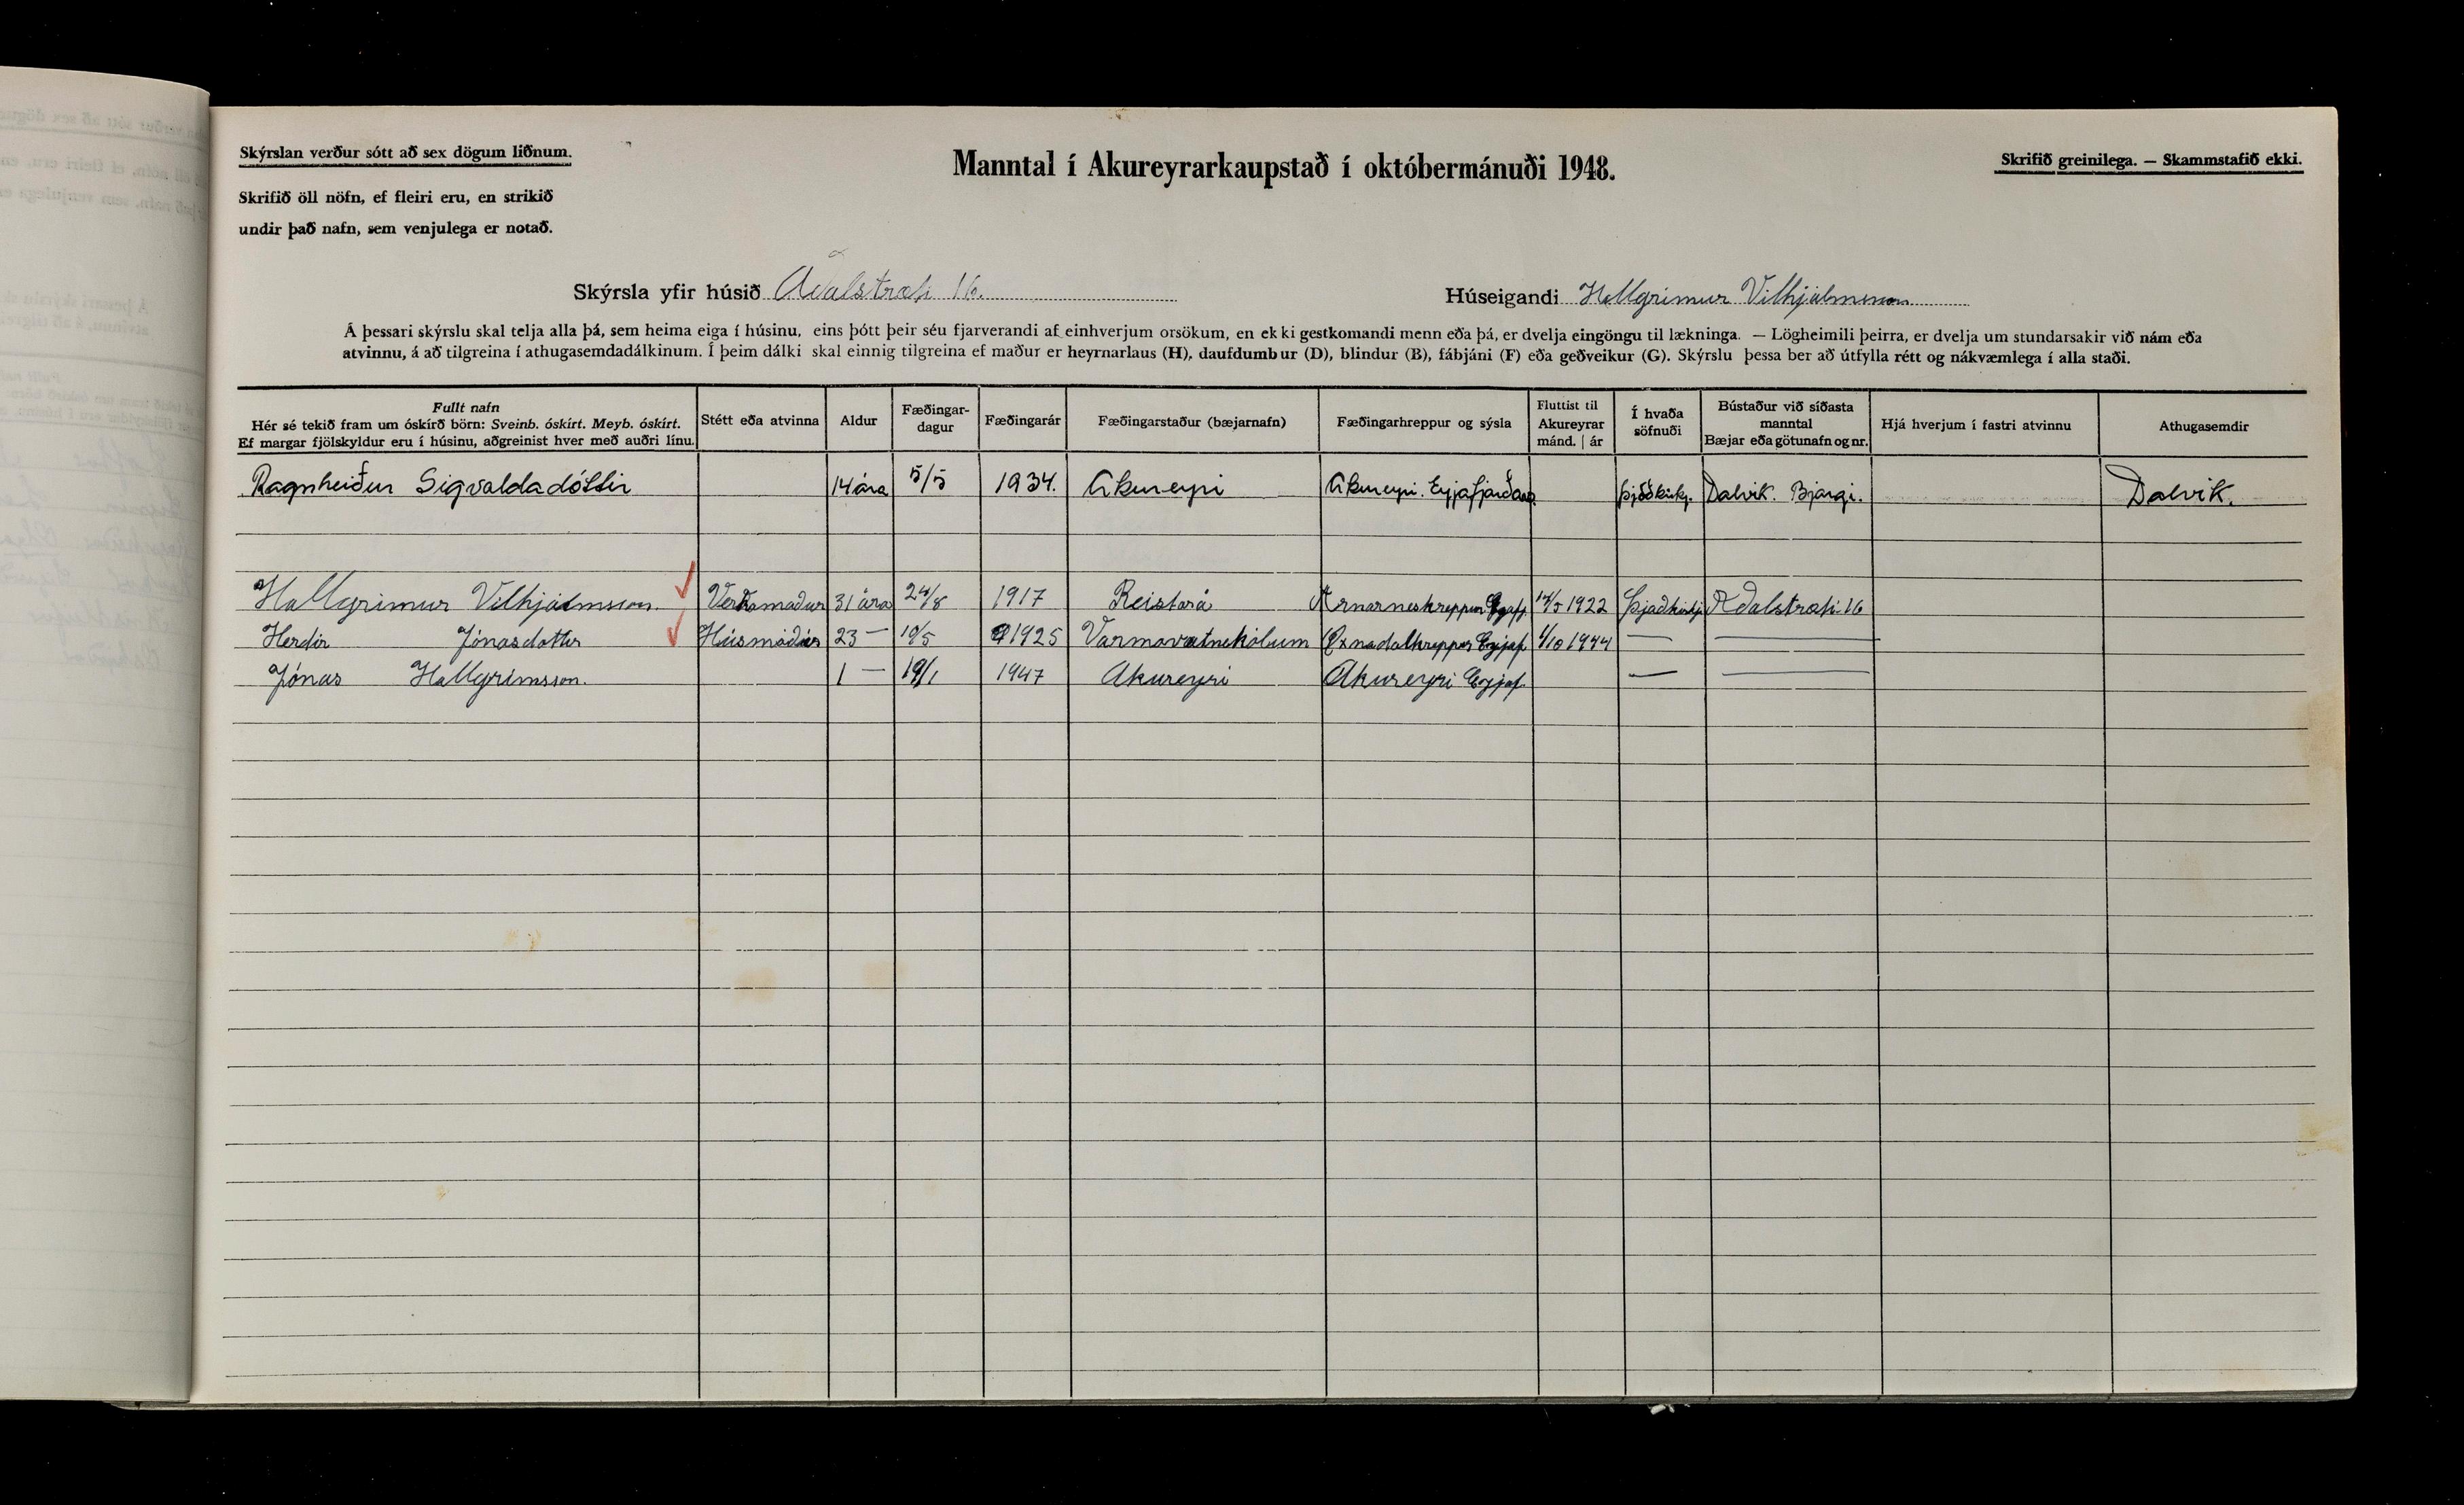 Skýrslan verður sótt að sex dögum liðnum.
Skrifið öll nöfn, ef fleiri eru, en strikið
undir það nafn, sem venjulega er notað.
Manntal í Akureyrarkaupstað í októbermánuði 1948.
Skrifið greinilega. — Skammstafið ekki.
Skýrsla yfir húsið Aðalstræti 16.
Húseigandi Hallgrimur Vilhjálmsson
Á þessari skýrslu skal telja alla þá, sem heima eiga í húsinu, eins þótt þeir séu fjarverandi af einhverjum orsökum, en ekki gestkomandi menn eða þá, er dvelja eingöngu til lækninga. — Lögheimili þeirra, er dvelja um stundarsakir við nám eða
atvinnu, á að tilgreina í athugasemdadálkinum. Í þeim dálki skal einnig tilgreina ef maður er heyrnarlaus (H), daufdumbur (D), blindur (B), fábjáni (F) eða geðveikur (G). Skýrslu þessa ber að útfylla rétt og nákvæmlega í alla staði.
Fullt nafn
Hér sé tekið fram um óskírð börn: Sveinb. óskírt. Meyb. óskírt.
Ef margar fjölskyldur eru í húsinu, aðgreinist hver með auðri línu.
Stétt eða atvinna
Aldur
Fæðingar-
dagur
Fæðingarár
Fæðingarstaður (bæjarnafn)
Fæðingarhreppur og sýsla
Fluttist til
Akureyrar
mánd. | ár
Í hvaða
söfnuði
Bústaður við síðasta
manntal
Bæjar eða götunafn og nr.
Hjá hverjum í fastri atvinnu
Athugasemdir
Ragnheiður Sigvaldadóttir 14 ára 5/5 1934. Akureyri Akureyri. Eyjafjarðar Þjóðkirkj. Dalvik. Bjargi. Dalvik.
Hallgrimur Vilhjálmsson. Verkamadur 31 ára 24/8 1917 Reistará Arnarneshreppur Eyjaf 14/5 1922 Þjoðkirkj Aðalstræti 16
Herdís Jónasdottir Húsmóðir 23 — 10/5 1925 Varmavatnshólum Öxnadalhreppur Eyjaf 1/10 1944 — —
Jónas Hallgrimsson. 1 — 19/1 1947 Akureyri Akureyri Eyjaf. — —